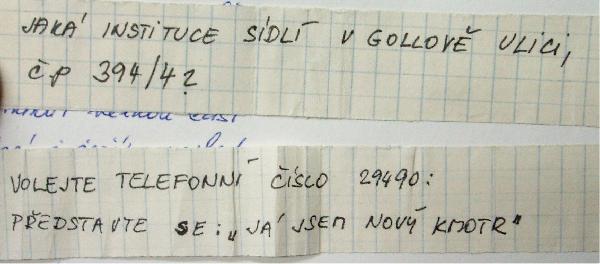 JAKÁ INSTITUCE SÍDLÍ V GOLLOVĚ ULICI,
ČP 394/4?
VOLEJTE TELEFONNÍ ČÍSLO 29490:
PŘEDSTAVTE SE: „JÁ JSEM NOVÝ KMOTR"